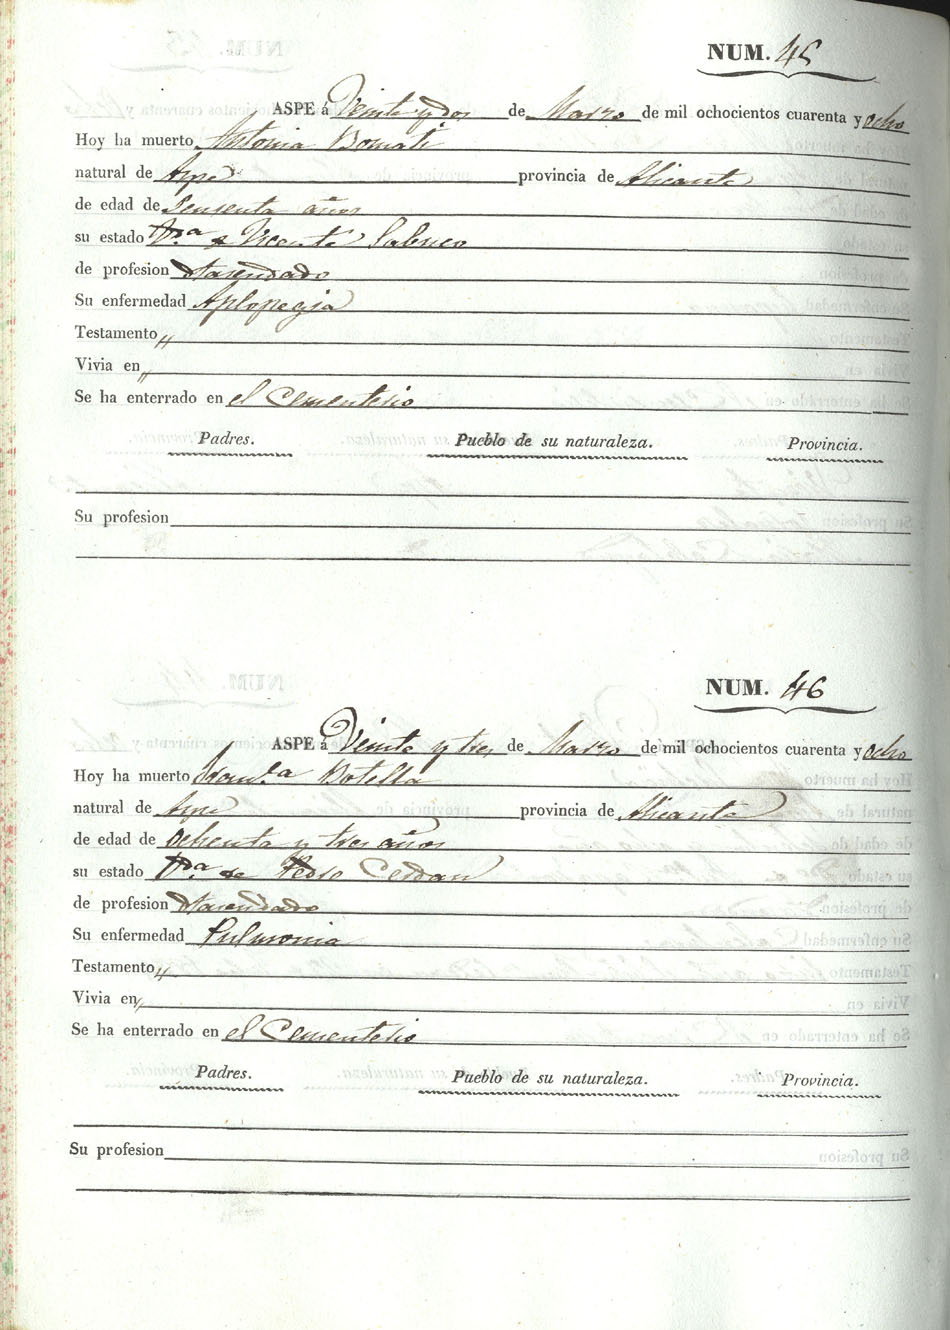 NUM. 45
ASPE á Veinte y dos de Marzo de mil ochocientos cuarenta y ocho
Hoy ha muerto Antonia Bomati
natural de Aspe provincia de Alicante
de edad de Sensenta años
su estado V.da de Vicente Sabuco
de profesion Hasendado
Su enfermedad Aplopegia
Testamento "
Vivia en "
Se ha enterrado en el Cementerio
Padres. Pueblo de su naturaleza. Provincia.
Su profesion
NUM. 46
ASPE á Veinte y tres de Marzo de mil ochocientos cuarenta y ocho
Hoy ha muerto Botella
natural de Aspe provincia de Alicante
de edad de Ochenta y tres años
su estado V.da de Pedro Cerdan
de profesion Hasendado
Su enfermedad Pulmonia
Testamento "
Vivia en "
Se ha enterrado en el Cementerio
Padres. Pueblo de su naturaleza. Provincia.
Su profesion